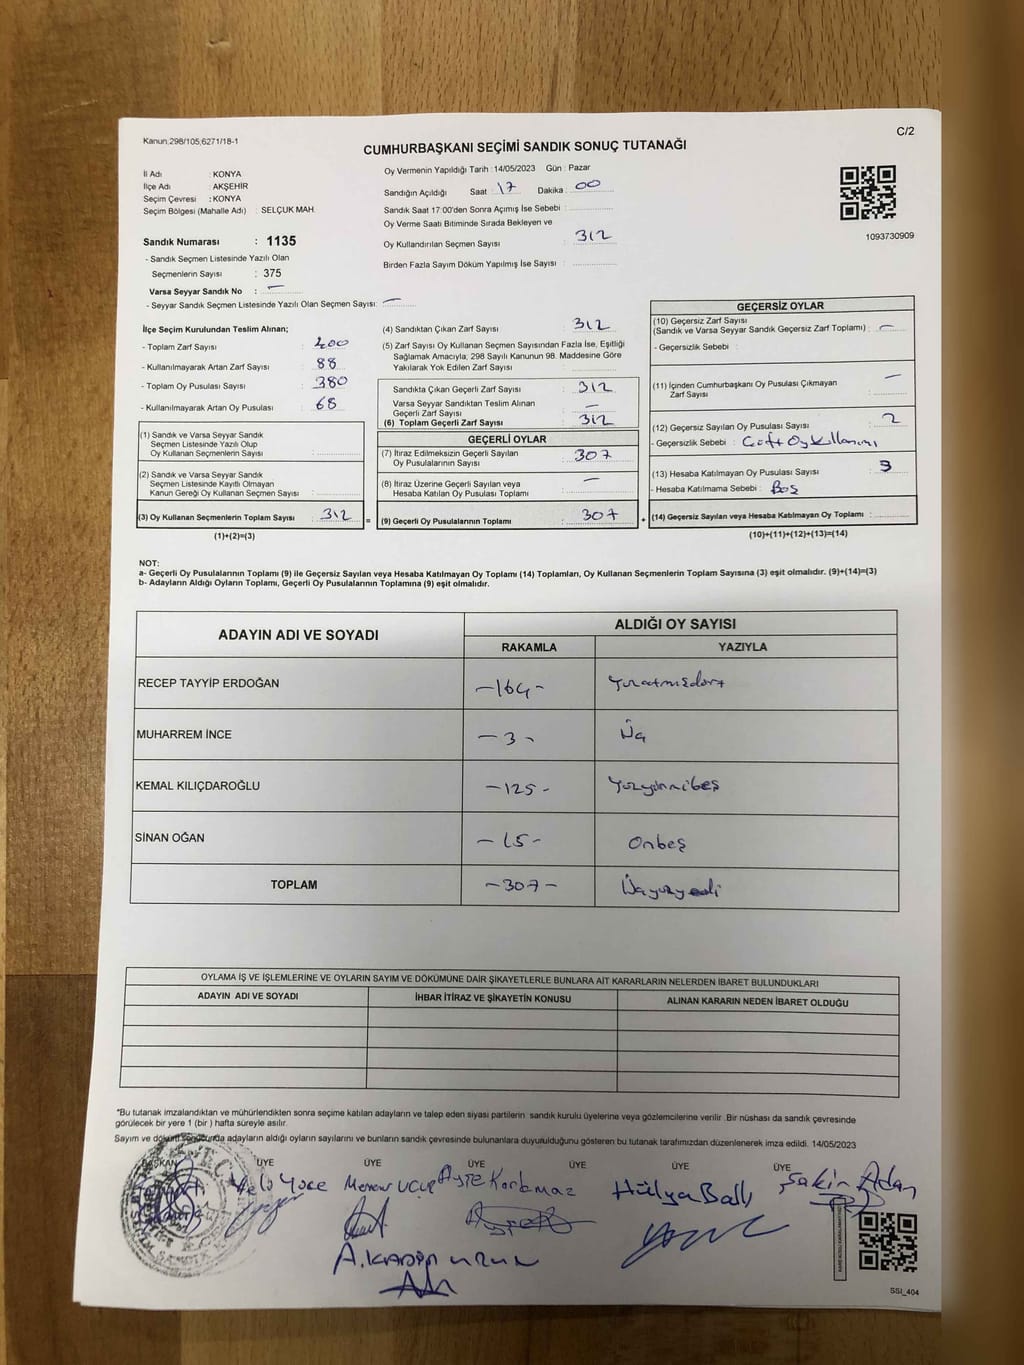 Kanun;298/105;6271/18-1
C/2
CUMHURBAŞKANI SEÇİMİ SANDIK SONUÇ TUTANAĞI
İl Adı : KONYA
İlçe Adı : AKŞEHİR
Seçim Çevresi : KONYA
Seçim Bölgesi (Mahalle Adı) : SELÇUK MAH.
Oy Vermenin Yapıldığı Tarih : 14/05/2023 Gün : Pazar
Sandığın Açıldığı Saat : 17 Dakika : 00
Sandık Saat 17:00'den Sonra Açımış İse Sebebi :
Oy Verme Saati Bitiminde Sırada Bekleyen ve
Oy Kullandırılan Seçmen Sayısı : 312
Birden Fazla Sayım Döküm Yapılmış İse Sayısı :
1093730909
Sandık Numarası : 1135
- Sandık Seçmen Listesinde Yazılı Olan
Seçmenlerin Sayısı : 375
Varsa Seyyar Sandık No : —
- Seyyar Sandık Seçmen Listesinde Yazılı Olan Seçmen Sayısı: —
İlçe Seçim Kurulundan Teslim Alınan;
- Toplam Zarf Sayısı : 400
- Kullanılmayarak Artan Zarf Sayısı : 88
- Toplam Oy Pusulası Sayısı : 380
- Kullanılmayarak Artan Oy Pusulası : 68
(1) Sandık ve Varsa Seyyar Sandık
Seçmen Listesinde Yazılı Olup
Oy Kullanan Seçmenlerin Sayısı :
(2) Sandık ve Varsa Seyyar Sandık
Seçmen Listesinde Kayıtlı Olmayan
Kanun Gereği Oy Kullanan Seçmen Sayısı :
(3) Oy Kullanan Seçmenlerin Toplam Sayısı : 312 =
(1)+(2)=(3)
(4) Sandıktan Çıkan Zarf Sayısı : 312
(5) Zarf Sayısı Oy Kullanan Seçmen Sayısından Fazla İse, Eşitliği
Sağlamak Amacıyla, 298 Sayılı Kanunun 98. Maddesine Göre
Yakılarak Yok Edilen Zarf Sayısı :
Sandıkta Çıkan Geçerli Zarf Sayısı : 312
Varsa Seyyar Sandıktan Teslim Alınan
Geçerli Zarf Sayısı : —
(6) Toplam Geçerli Zarf Sayısı : 312
GEÇERLİ OYLAR
(7) İtiraz Edilmeksizin Geçerli Sayılan
Oy Pusulalarının Sayısı : 307
(8) İtiraz Üzerine Geçerli Sayılan veya
Hesaba Katılan Oy Pusulası Toplamı : —
(9) Geçerli Oy Pusulalarının Toplamı : 307 +
GEÇERSİZ OYLAR
(10) Geçersiz Zarf Sayısı
(Sandık ve Varsa Seyyar Sandık Geçersiz Zarf Toplamı) : —
- Geçersizlik Sebebi :
(11) İçinden Cumhurbaşkanı Oy Pusulası Çıkmayan
Zarf Sayısı : —
(12) Geçersiz Sayılan Oy Pusulası Sayısı : 2
- Geçersizlik Sebebi : Çift Oy kullanımı
(13) Hesaba Katılmayan Oy Pusulası Sayısı : 3
- Hesaba Katılmama Sebebi : Boş
(14) Geçersiz Sayılan veya Hesaba Katılmayan Oy Toplamı :
(10)+(11)+(12)+(13)=(14)
NOT:
a- Geçerli Oy Pusulalarının Toplamı (9) ile Geçersiz Sayılan veya Hesaba Katılmayan Oy Toplamı (14) Toplamları, Oy Kullanan Seçmenlerin Toplam Sayısına (3) eşit olmalıdır. (9)+(14)=(3)
b- Adayların Aldığı Oyların Toplamı, Geçerli Oy Pusulalarının Toplamına (9) eşit olmalıdır.
ADAYIN ADI VE SOYADI
ALDIĞI OY SAYISI
RAKAMLA YAZIYLA
RECEP TAYYİP ERDOĞAN -164- Yüzatmışdört
MUHARREM İNCE -3- Üç
KEMAL KILIÇDAROĞLU -125- Yüzyirmibeş
SİNAN OĞAN -15- Onbeş
TOPLAM -307- Üçyüzyedi
OYLAMA İŞ VE İŞLEMLERİNE VE OYLARIN SAYIM VE DÖKÜMÜNE DAİR ŞİKAYETLERLE BUNLARA AİT KARARLARIN NELERDEN İBARET BULUNDUKLARI
ADAYIN ADI VE SOYADI İHBAR İTİRAZ VE ŞİKAYETİN KONUSU ALINAN KARARIN NEDEN İBARET OLDUĞU
*Bu tutanak imzalandıktan ve mühürlendikten sonra seçime katılan adayların ve talep eden siyasi partilerin sandık kurulu üyelerine veya gözlemcilerine verilir .Bir nüshası da sandık çevresinde
görülecek bir yere 1 (bir ) hafta süreyle asılır.
Sayım ve döküm sonucunda adayların aldığı oyların sayılarını ve bunların sandık çevresinde bulunanlara duyurulduğunu gösteren bu tutanak tarafımızdan düzenlenerek imza edildi. 14/05/2023
BAŞKAN ÜYE ÜYE ÜYE ÜYE ÜYE ÜYE
Ayşe Korkmaz Hülya Ballı Şakir Adan
A. KADİR UZUN
SSI_404